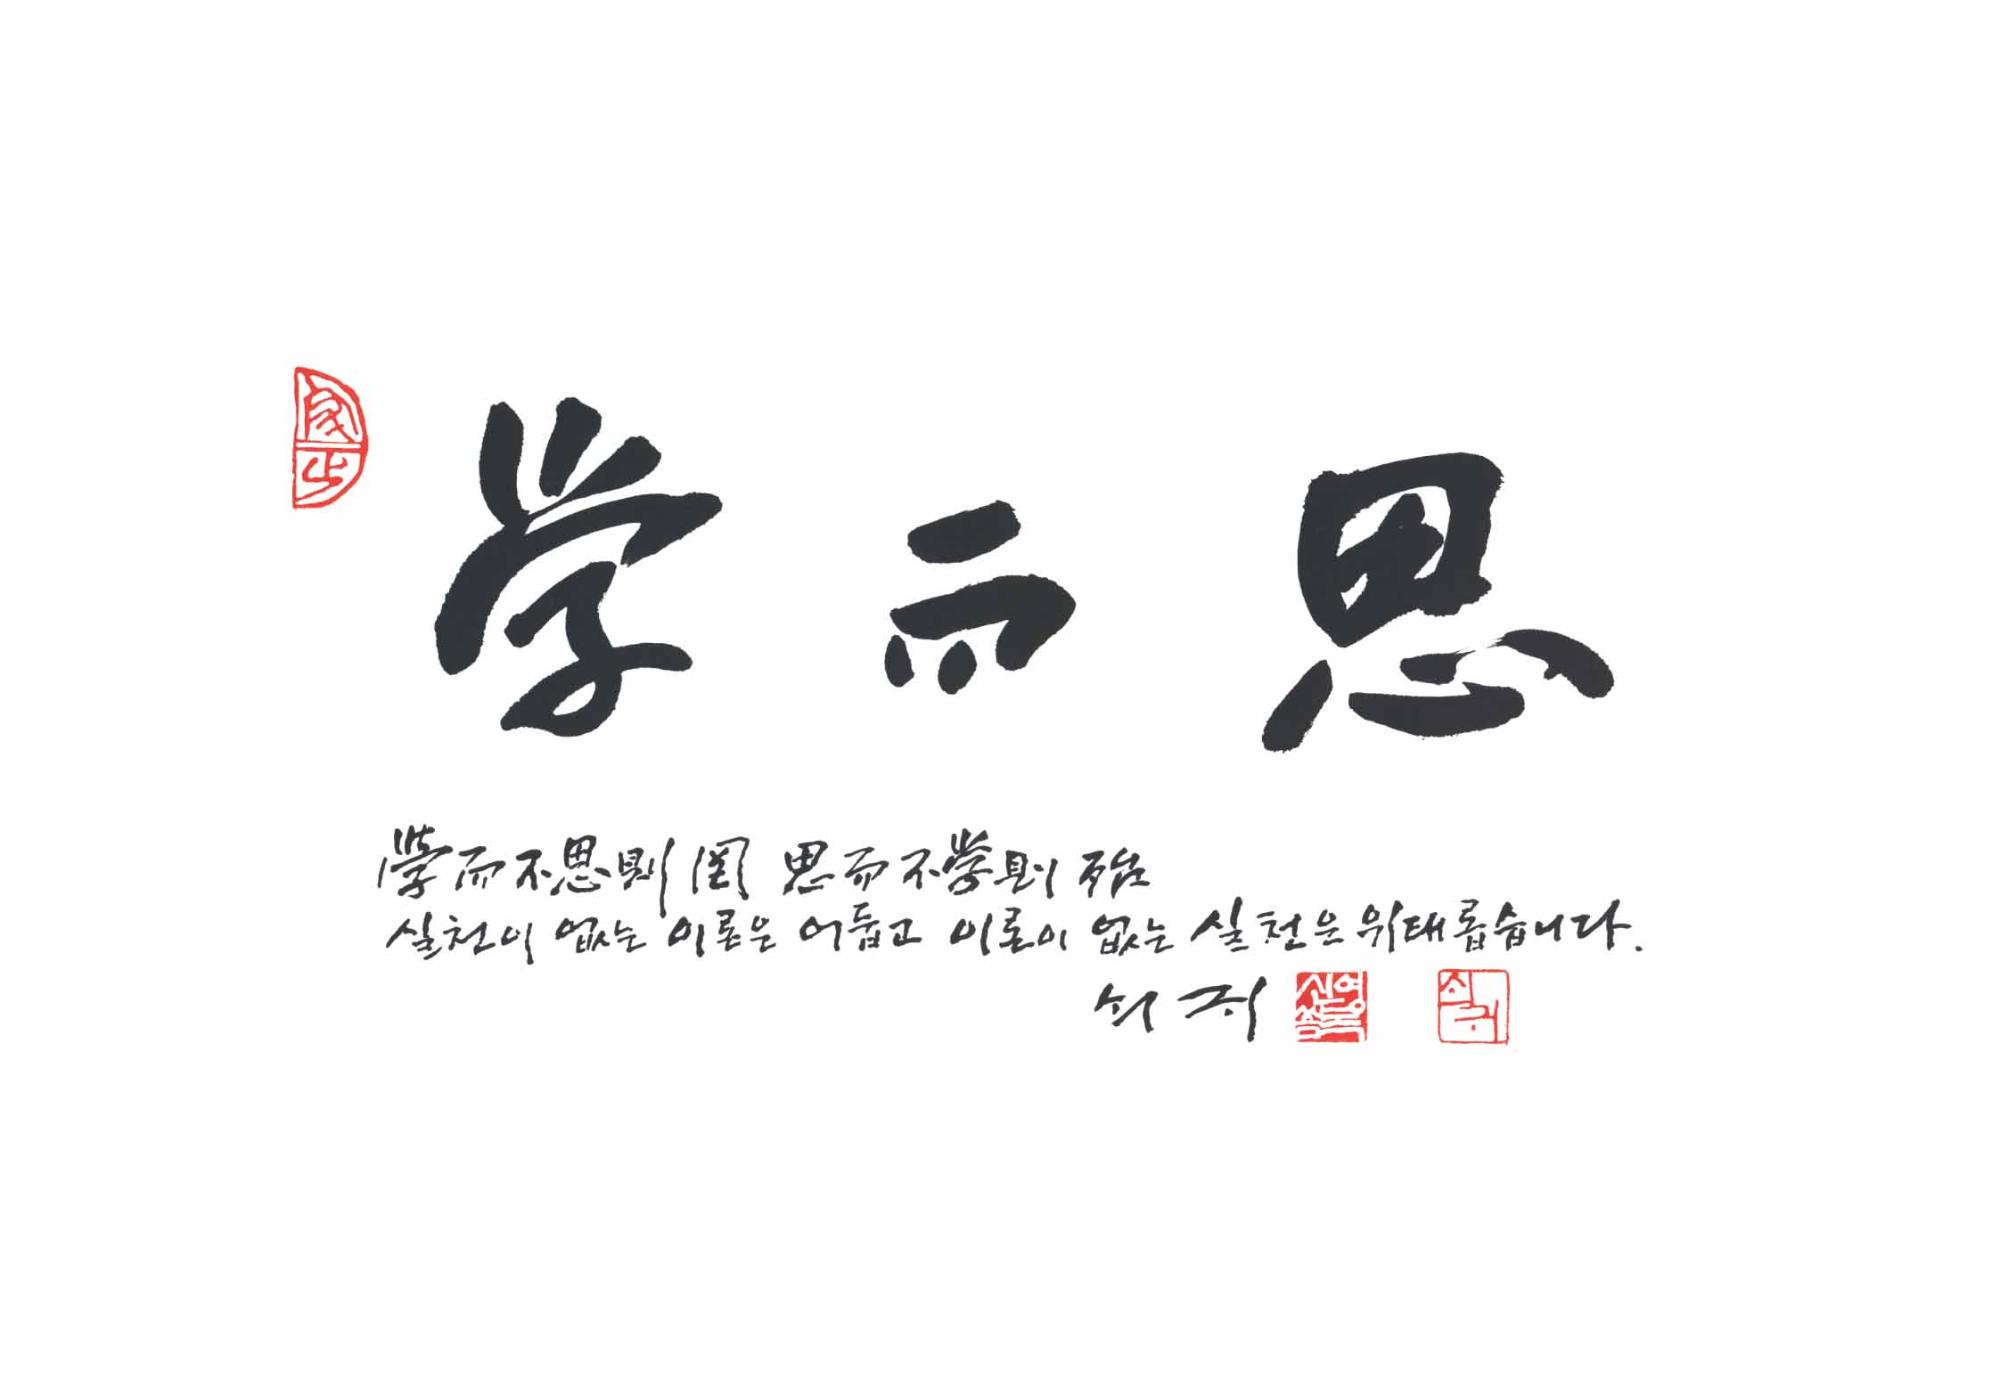 学而思
學而不思則罔 思而不學則殆
실천이 없는 이론은 어둡고 이론이 없는 실천은 위태롭습니다.
쇠귀
신영복
쇠귀